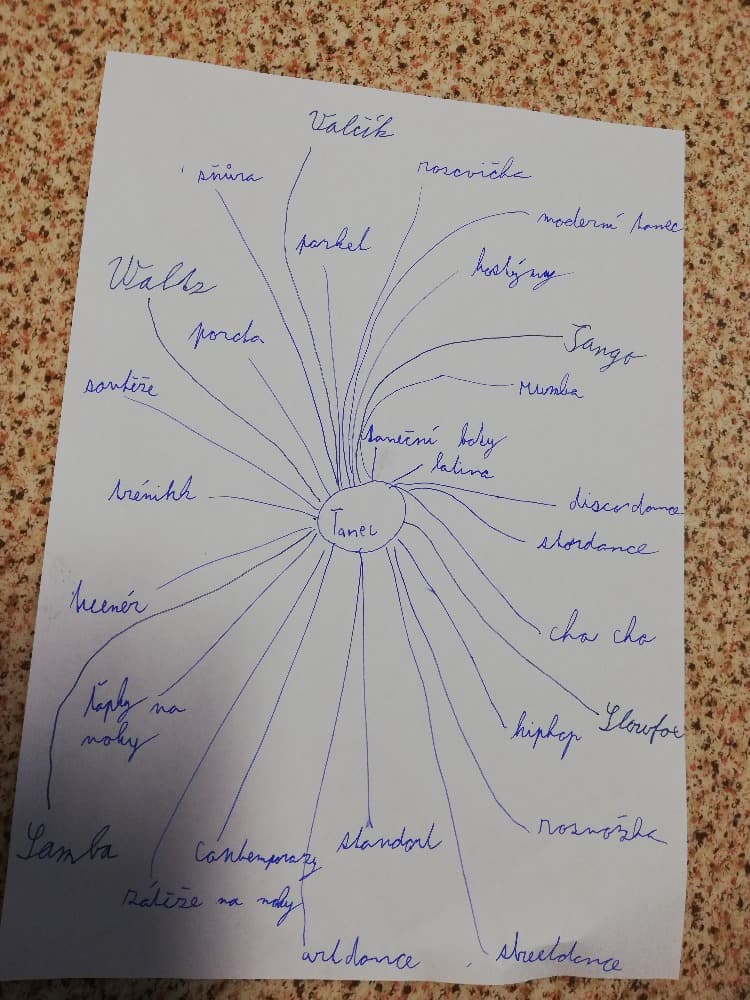 Valčík
šňůra
roscvička
moderní tanec
parket
kostýmy
Waltz
porota
Tango
rumba
soutěže
taneční boty
latina
trénikk
discodance
Tanec
stardance
trenér
cha cha
ťapky na
nohy
Slowfox
hiphop
roznožka
Samba
Contemporary
standart
zátěže na nohy
artdance
streetdance